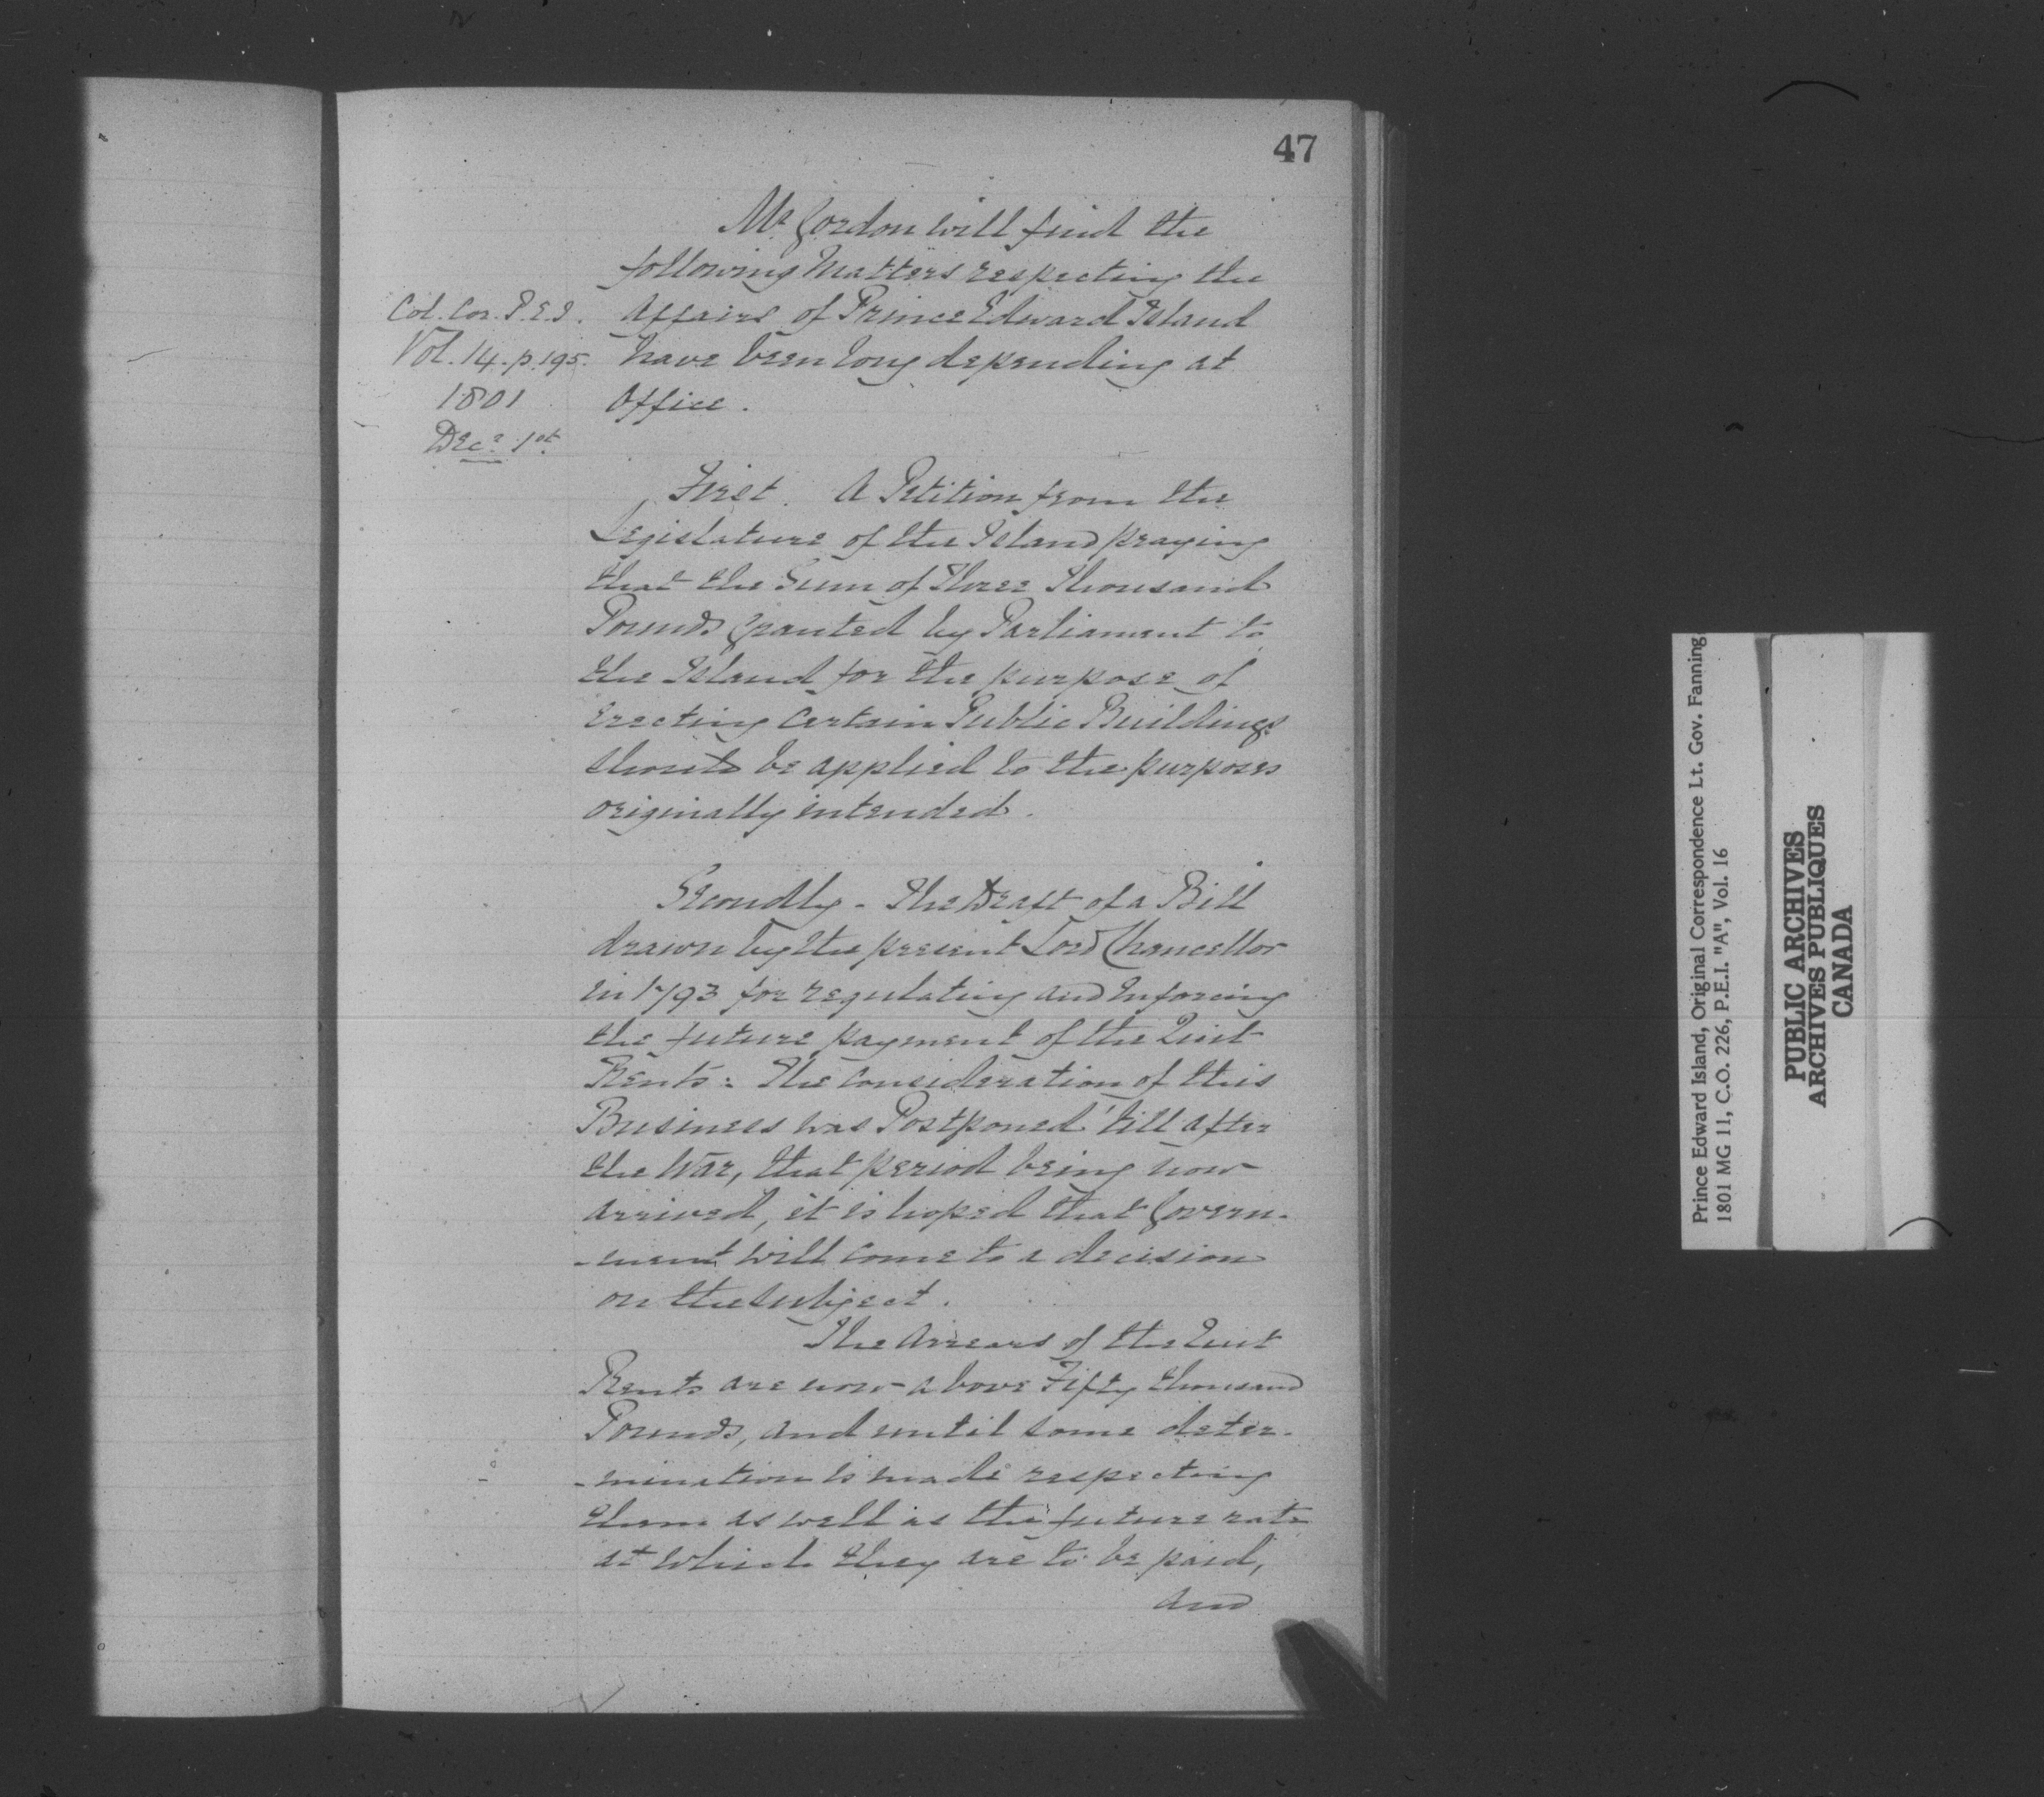 47
Mr Gordon will find the
following Matters respecting the
Col. Cor. P.E.I.
Affairs of Prince Edward Island
Vol. 14. p. 195.
have been long depending at
1801
Office.
Decr 1st
First. A Petition from the
Legislature of the Island praying
that the Sum of Three Thousand
Pounds granted by Parliament to
the Island for the purpose of
Erecting Certain Public Buildings
should be applied to the purposes
originally intended.
Secondly - The Draft of a Bill
drawn by the present Lord Chancellor
in 1793 for regulating and Inforcing
the future payment of the Quit
Rents: The Consideration of this
Business was Postponed 'till after
the War, that period being now
arrived, it is hoped that Govern-
-ment will come to a decision
on the subject.
The Arrears of the Quit
Rents are now above Fifty thousand
Pounds, and until some deter-
-mination is made respecting
them as well as the future rate
at which they are to be paid,
and
Prince Edward Island, Original Correspondence Lt. Gov. Fanning
1801 MG 11, C.O. 226, P.E.I. "A", Vol. 16
PUBLIC ARCHIVES
ARCHIVES PUBLIQUES
CANADA